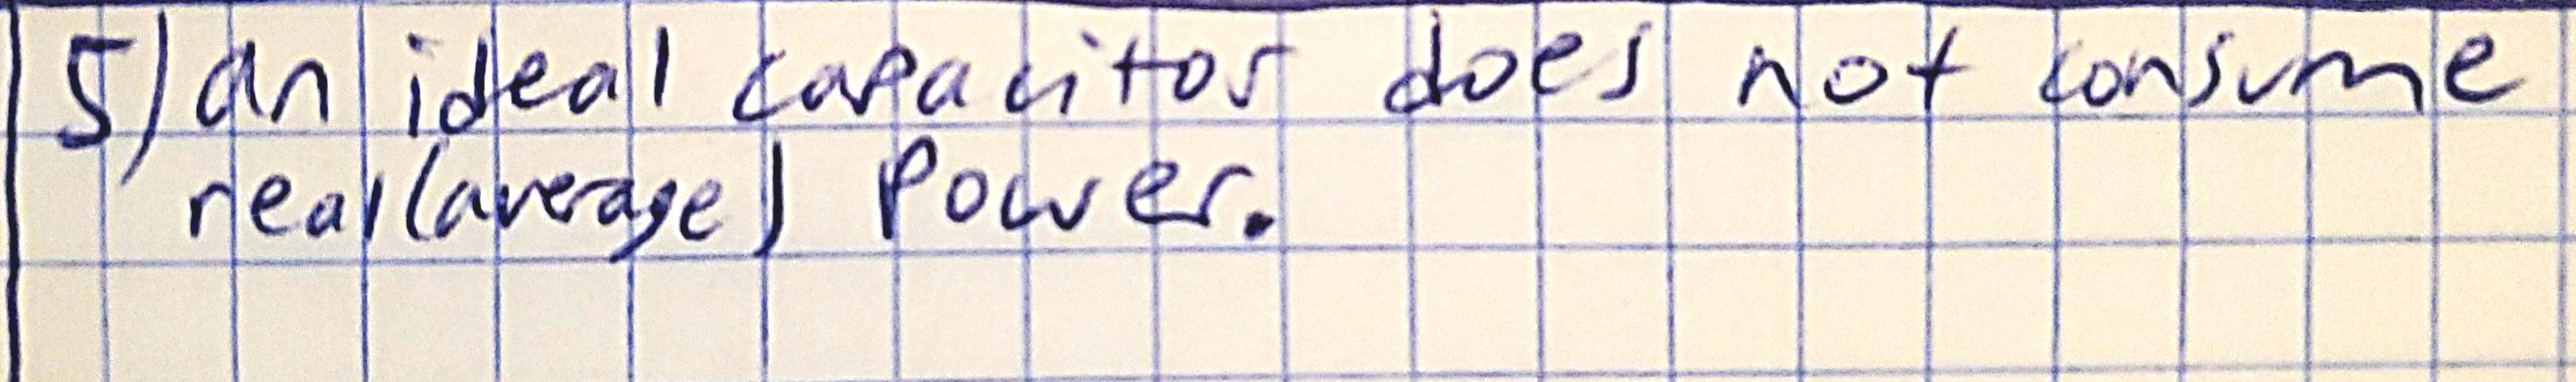 5) an ideal capacitor does not consume
real(average) Power.